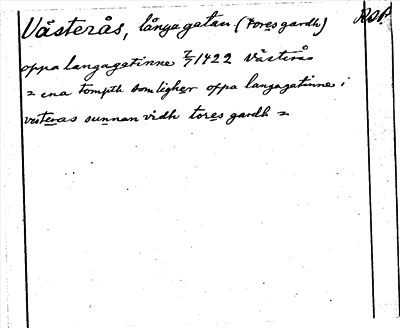 Västerås, långa gatan (tores gardh) ROP.
oppa langagatinne 7/7 1422 Västerås
= ena tompth som ligher oppa langagatinne i
vesteras sunnan vidh tores gardh =